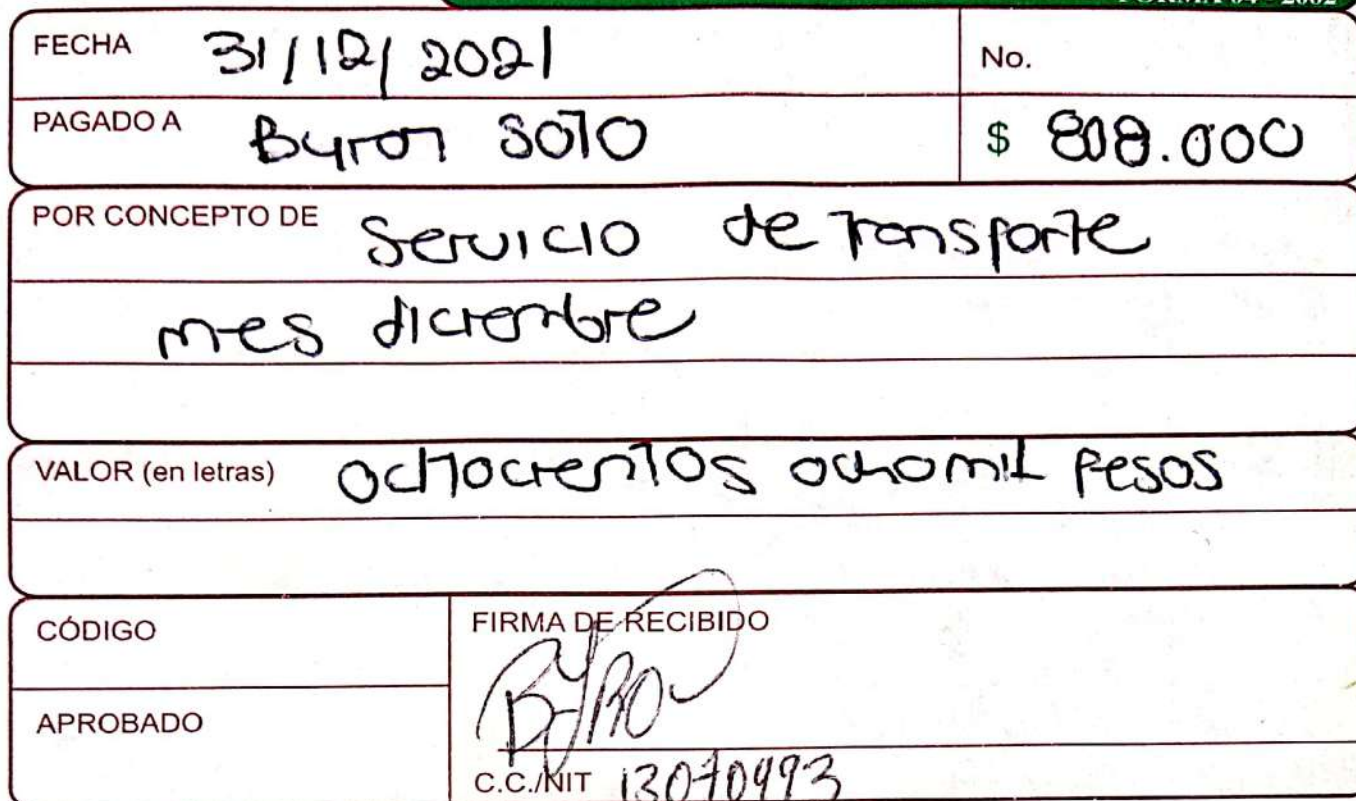 FECHA 31/12/2021 No.
PAGADO A Byron Soto $ 808.000
POR CONCEPTO DE Servicio de Transporte
mes diciembre
VALOR (en letras) ochocientos ochomil pesos
CÓDIGO FIRMA DE RECIBIDO
APROBADO
C.C./NIT 13070493